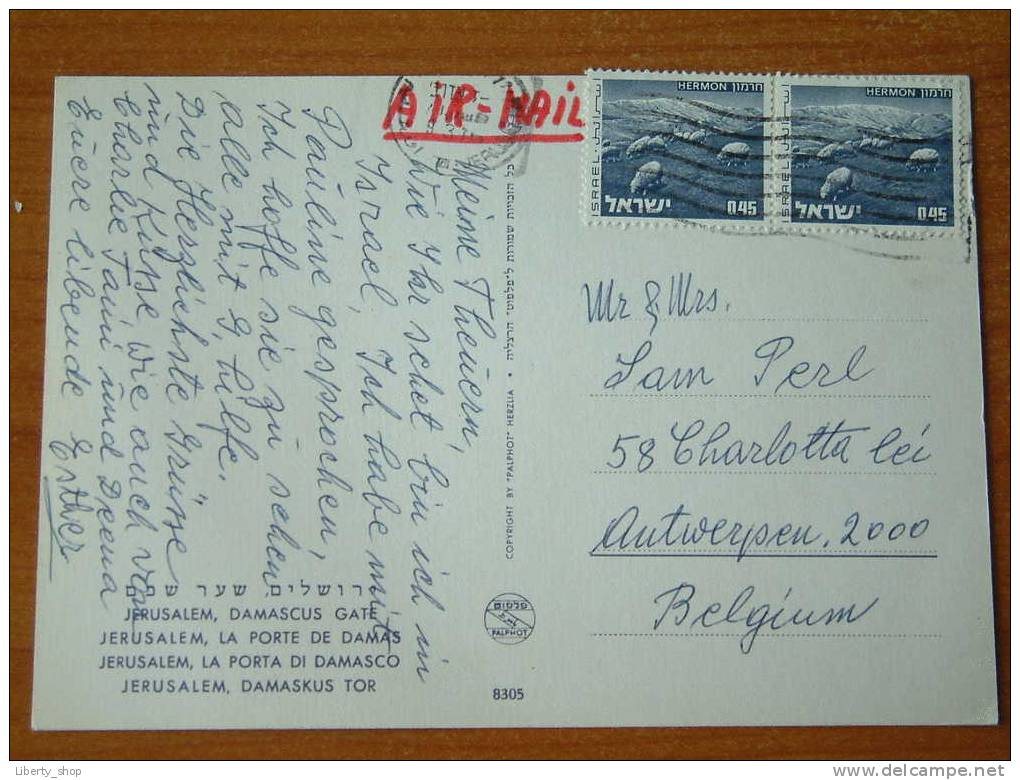 AIR-MAIL
HERMON חרמון
ISRAEL
ישראל
0.45
HERMON חרמון
ISRAEL
ישראל
0.45
Meine Theuern,
Wie Ihr sehet bin ich in
Israel, Ich habe mit
Pauline gesprochen,
Ich hoffe sie zu sehen
alle mit G, hilfe.
Die Herzlichste Grüsse
und Küsse wie auch von
Charlie Tami und Deena
Euere libende Esther
ירושלים, שער שכם
JERUSALEM, DAMASCUS GATE
JERUSALEM, LA PORTE DE DAMAS
JERUSALEM, LA PORTA DI DAMASCO
JERUSALEM, DAMASKUS TOR
COPYRIGHT BY "PALPHOT" HERZLIA • כל הזכויות שמורות ל"פלפוט" הרצליה
פלפוט
PALPHOT
8305
Mr & Mrs.
Sam Perl
58 Charlotta lei
Antwerpen, 2000
Belgium
Liberty_shop
delcampe.net